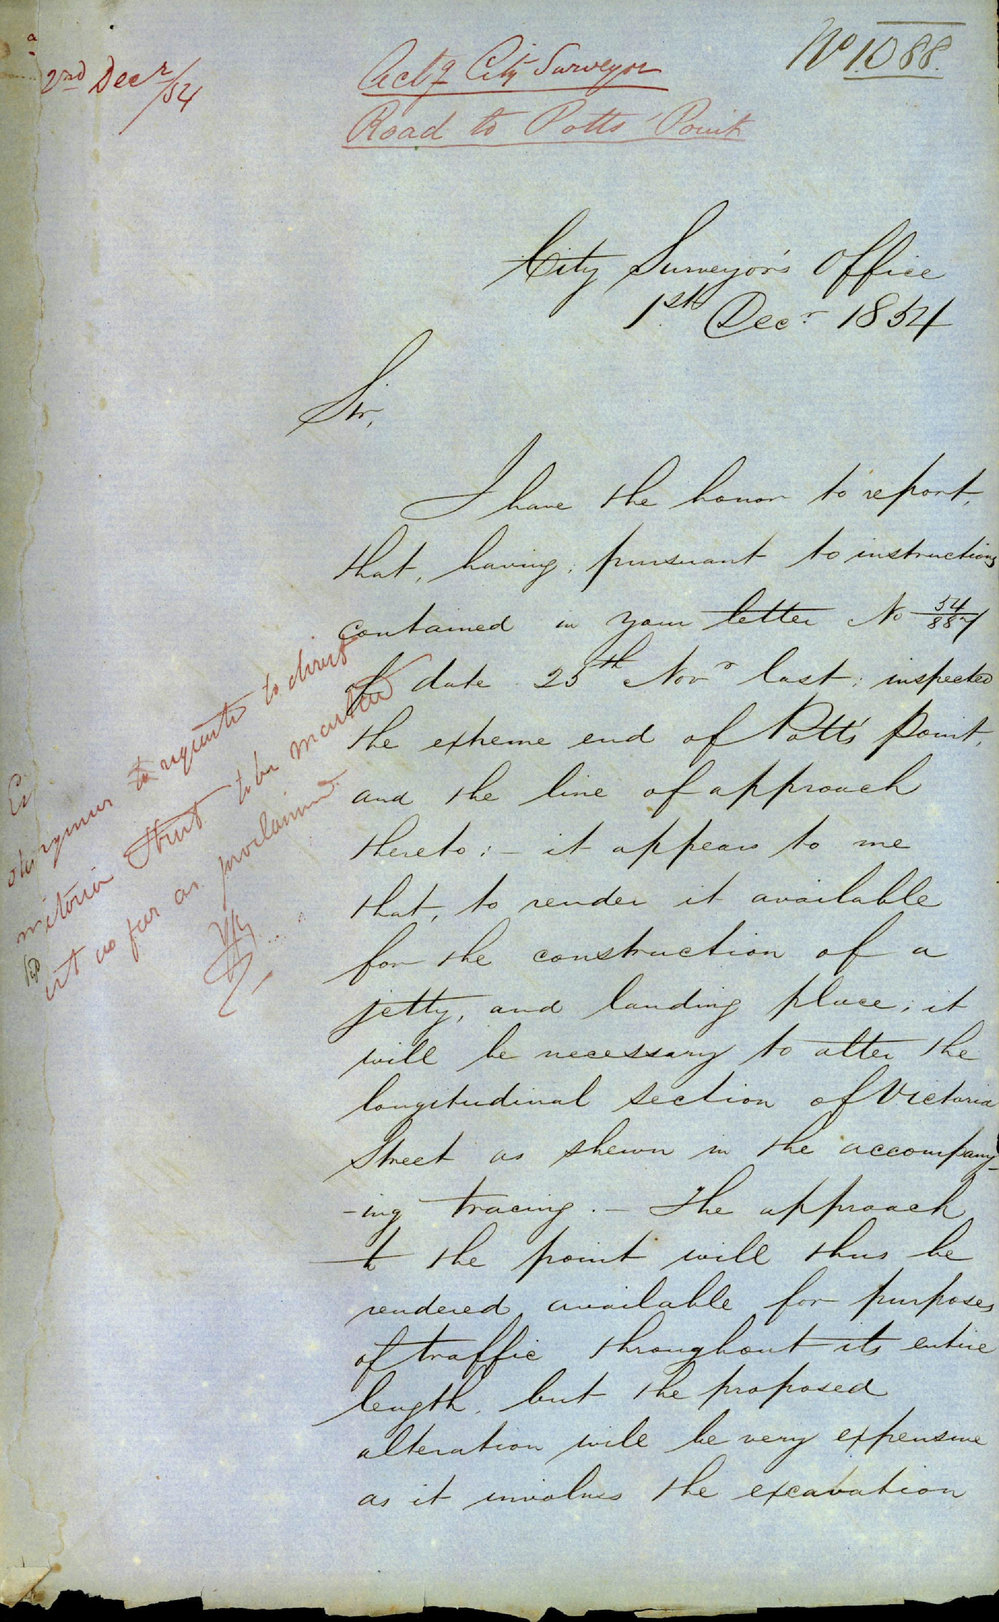 2nd Decr/54
Actg City Surveyor
Road to Potts' Point
No 1088.
City Surveyor's Office
1st Decr 1854
Sir,
I have the honor to report,
that, having, pursuant to instructions
contained in your letter No 54/887
of date 25th Novr last; inspected
the extreme end of Potts' Point,
and the line of approach
thereto:- it appears to me
that, to render it available
for the construction of a
jetty, and landing place; it
will be necessary to alter the
longitudinal section of Victoria
Street as shewn in the accompany-
-ing tracing. - The approach
to the point will thus be
rendered available for purposes
of traffic throughout its entire
length, but the proposed
alteration will be very expensive
as it involves the excavation
to direct
Street to be marked
as far as proclaimed